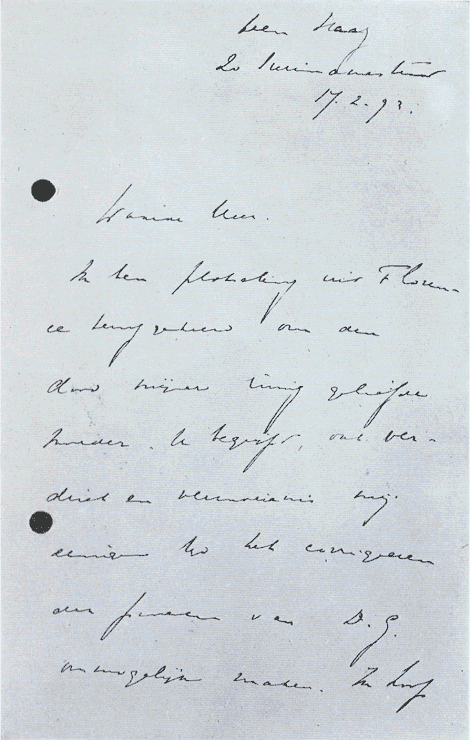 Den Haag
20
17.2.93.
Waarde Heer.
Ik ben plotseling uit Floren-
ce teruggekeerd om den
dood mijner innig geliefde
moeder. U begrijpt, dat ver-
driet en vermoeienis mij
eenigen tijd het corrigeeren
der proeven van D. G.
onmogelijk maken. Ik hoop